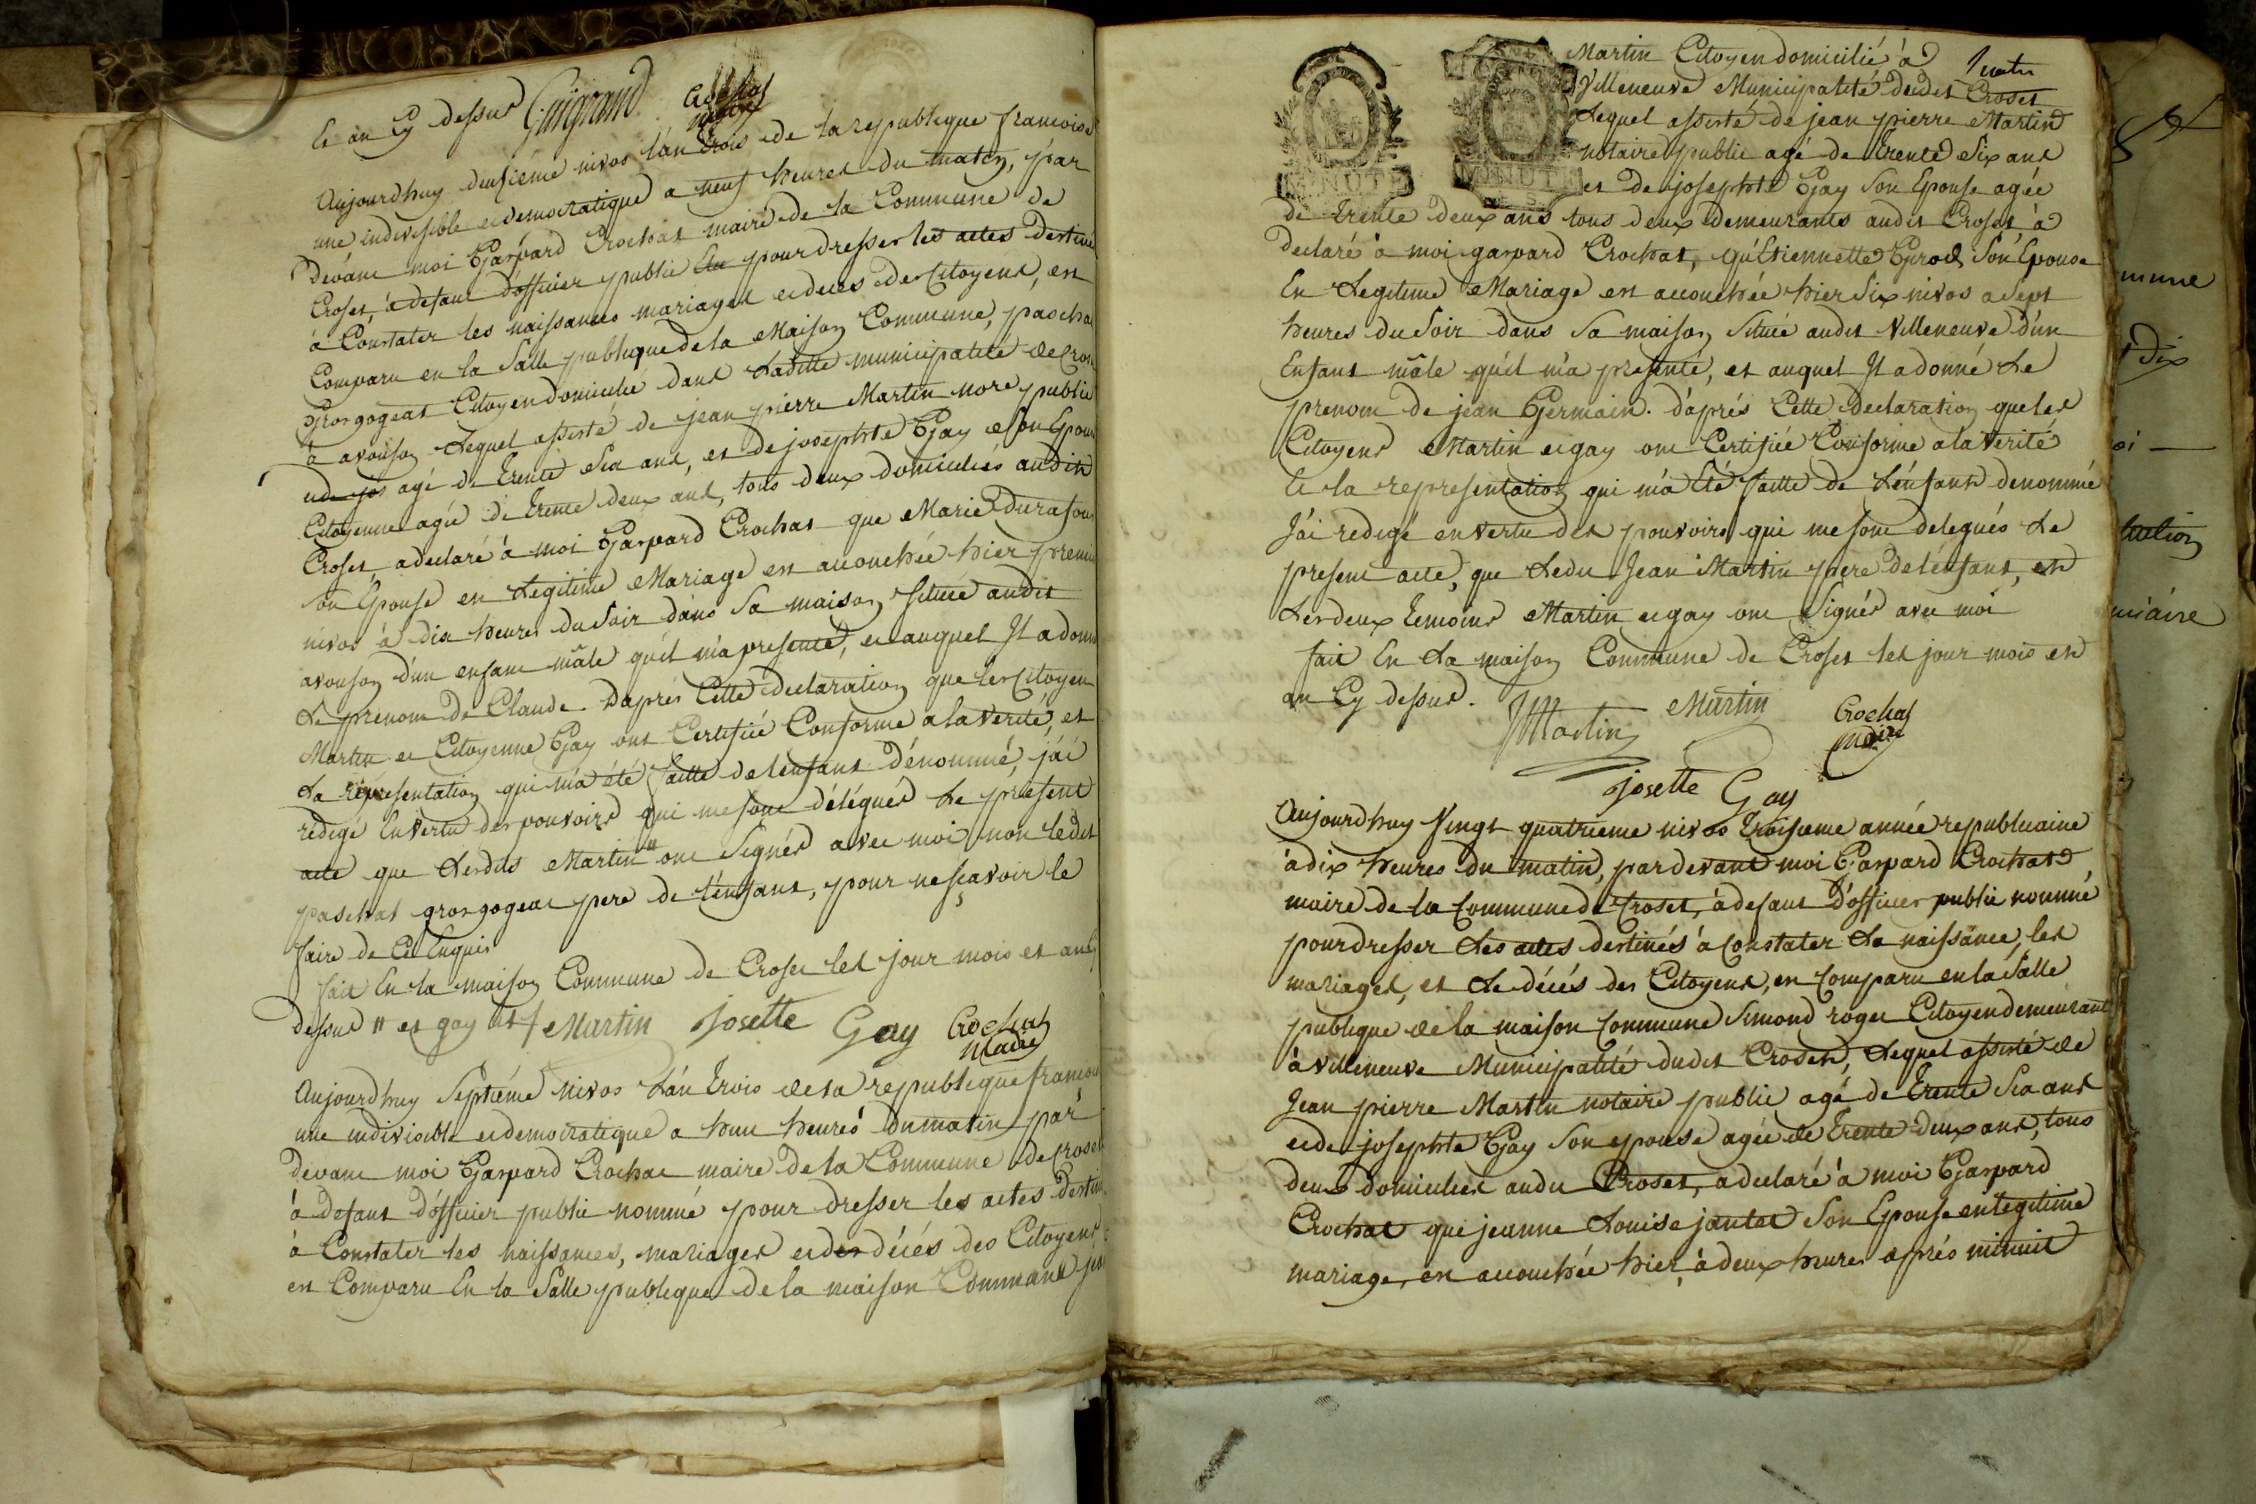 Et an Cy dessus Guigrand Crochat maire
Aujourdhuy deusiéme nivos l'an trois de la republique francoise
une indivisible et democratique a neuf heures du matin, par
devant moi Gaspard Crochat maire de la Commune de
Croset, a defaut d'officier public pour dresser les actes destiné
à Constater les naissances mariages et deces des Citoyens, est
Comparu en la Salle publique de la Maison Commune, paschal
Grosgogeat Citoyen domicilié dans Laditte municipalité de Cros
à avouson Lequel assisté de jean pierre Martin nore public
agé de trente Six ans, et de josephte Gay Son Epou
Citoyenne agée de trente deux ans, tous deux domiciliés audit
Croset a declaré à moi Gaspard Crochat que Marie Durafour
Son Epouse en Legitime Mariage est accouchée hier premie
nivos à dix heures du Soir dans Sa maison Située audit
avouson d'un enfant mâle qu'il m'a presenté, et auquel Il a donné
Le prenom de Claude. D'aprés Cette declaration que les Citoyen
Martin et Citoyenne Gay ont Certifiée Conforme a la verité, et
La représentation qui m'a été faitte de lenfant dénommé, j'ai
rédigé En vertu des pouvoirs qui me sont délégués Le present
acte que Lesdits Martin " ont Signés avec moi non ledit
paschal grosgogeat pere de l'enfant, pour ne sçavoir le
faire de Ce Enquis
fait En la maison Commune de Croset les jour mois et an Cy
dessus " et gay Martin Josette Gay Crochat maire
Aujourdhuy Septiéme Nivos L'an trois de la republique francoi
une indivisible et democratique a huit heures du matin par
devant moi Gaspard Crochat maire de la Commune de Croset
à defaut d'officier public nommé pour dresser les actes destin
à Constater les naissances, mariages et des décés des Citoyens
est Comparu En la Salle publique de la maison Commune jean
Martin Citoyen domicilié à
Villeneuve Municipalité dudit Croset
Lequel assisté de jean pierre Martin
notaire public agé de trente Six ans
et de josephte Gay Son Epouse agée
MINUTE MINUTE
de trente deux ans tous deux demeurants audit Croset à
declaré à moi gaspard Crochat, qu'Estiennette Son Epouse
En Legitime Mariage est accouchée hier Six nivos a Sept
heures du Soir dans Sa maison Située audit Villeneuve d'un
Enfant mâle qu'il m'a presenté, et auquel Il a donné Le
prenom de jean Germain. d'aprés Cette declaration que les
Citoyens Martin et gay ont Certifiée Conforme a la verité
Et la representation qui m'a été faitte de L'enfant denommé
J'ai redigé en vertu des pouvoirs qui me sont delegués Le
present acte, que Ledit Jean Martin pere de l'enfant, et
Les deux temoins Martin et gay ont Signés avec moi
fait En La maison Commune de Croset les jour mois et
an Cy dessus. JMartin Martin Crochat maire
Josette Gay
Aujourdhuy Vingt quatrieme nivos troisieme année republicaine
à dix heures du matin, pardevant moi Gaspard Crochat
maire de la Commune de Croset, à defaut d'officier public nommé
pour dresser Les actes destinés à Constater La naissance, les
mariages, et Le décés des Citoyens, est Comparu en la Salle
publique de la maison Commune Simond roger Citoyen demeurant
à Villeneuve Municipalité dudit Croset, Lequel assisté de
Jean pierre Martin notaire public agé de trente Six ans
et de josephte Gay Son epouse agée de trente deux ans, tous
deux domiciliés audit Croset, a declaré à moi Gaspard
Crochat que jeanne Louise jantet Son Epouse en legitime
mariage, est accouchée hier, à deux heures aprés minuit
mune
dix
oi
uciaire